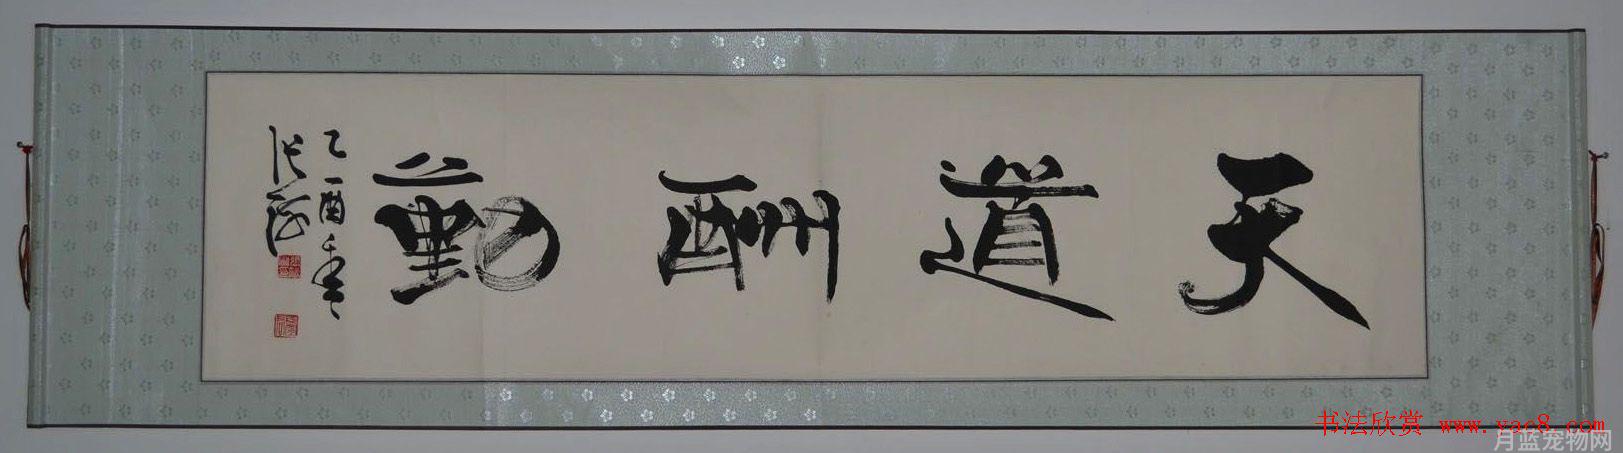 天道酬勤
乙酉季春
张海
书法欣赏 www.yac8.com
月蓝宠物网